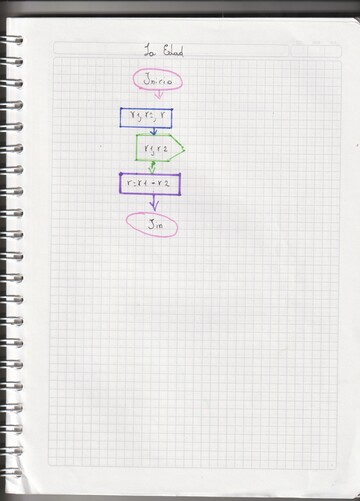 La Edad
Inicio
r1, r2, r
r1, r2
r=r1-r2
Fin